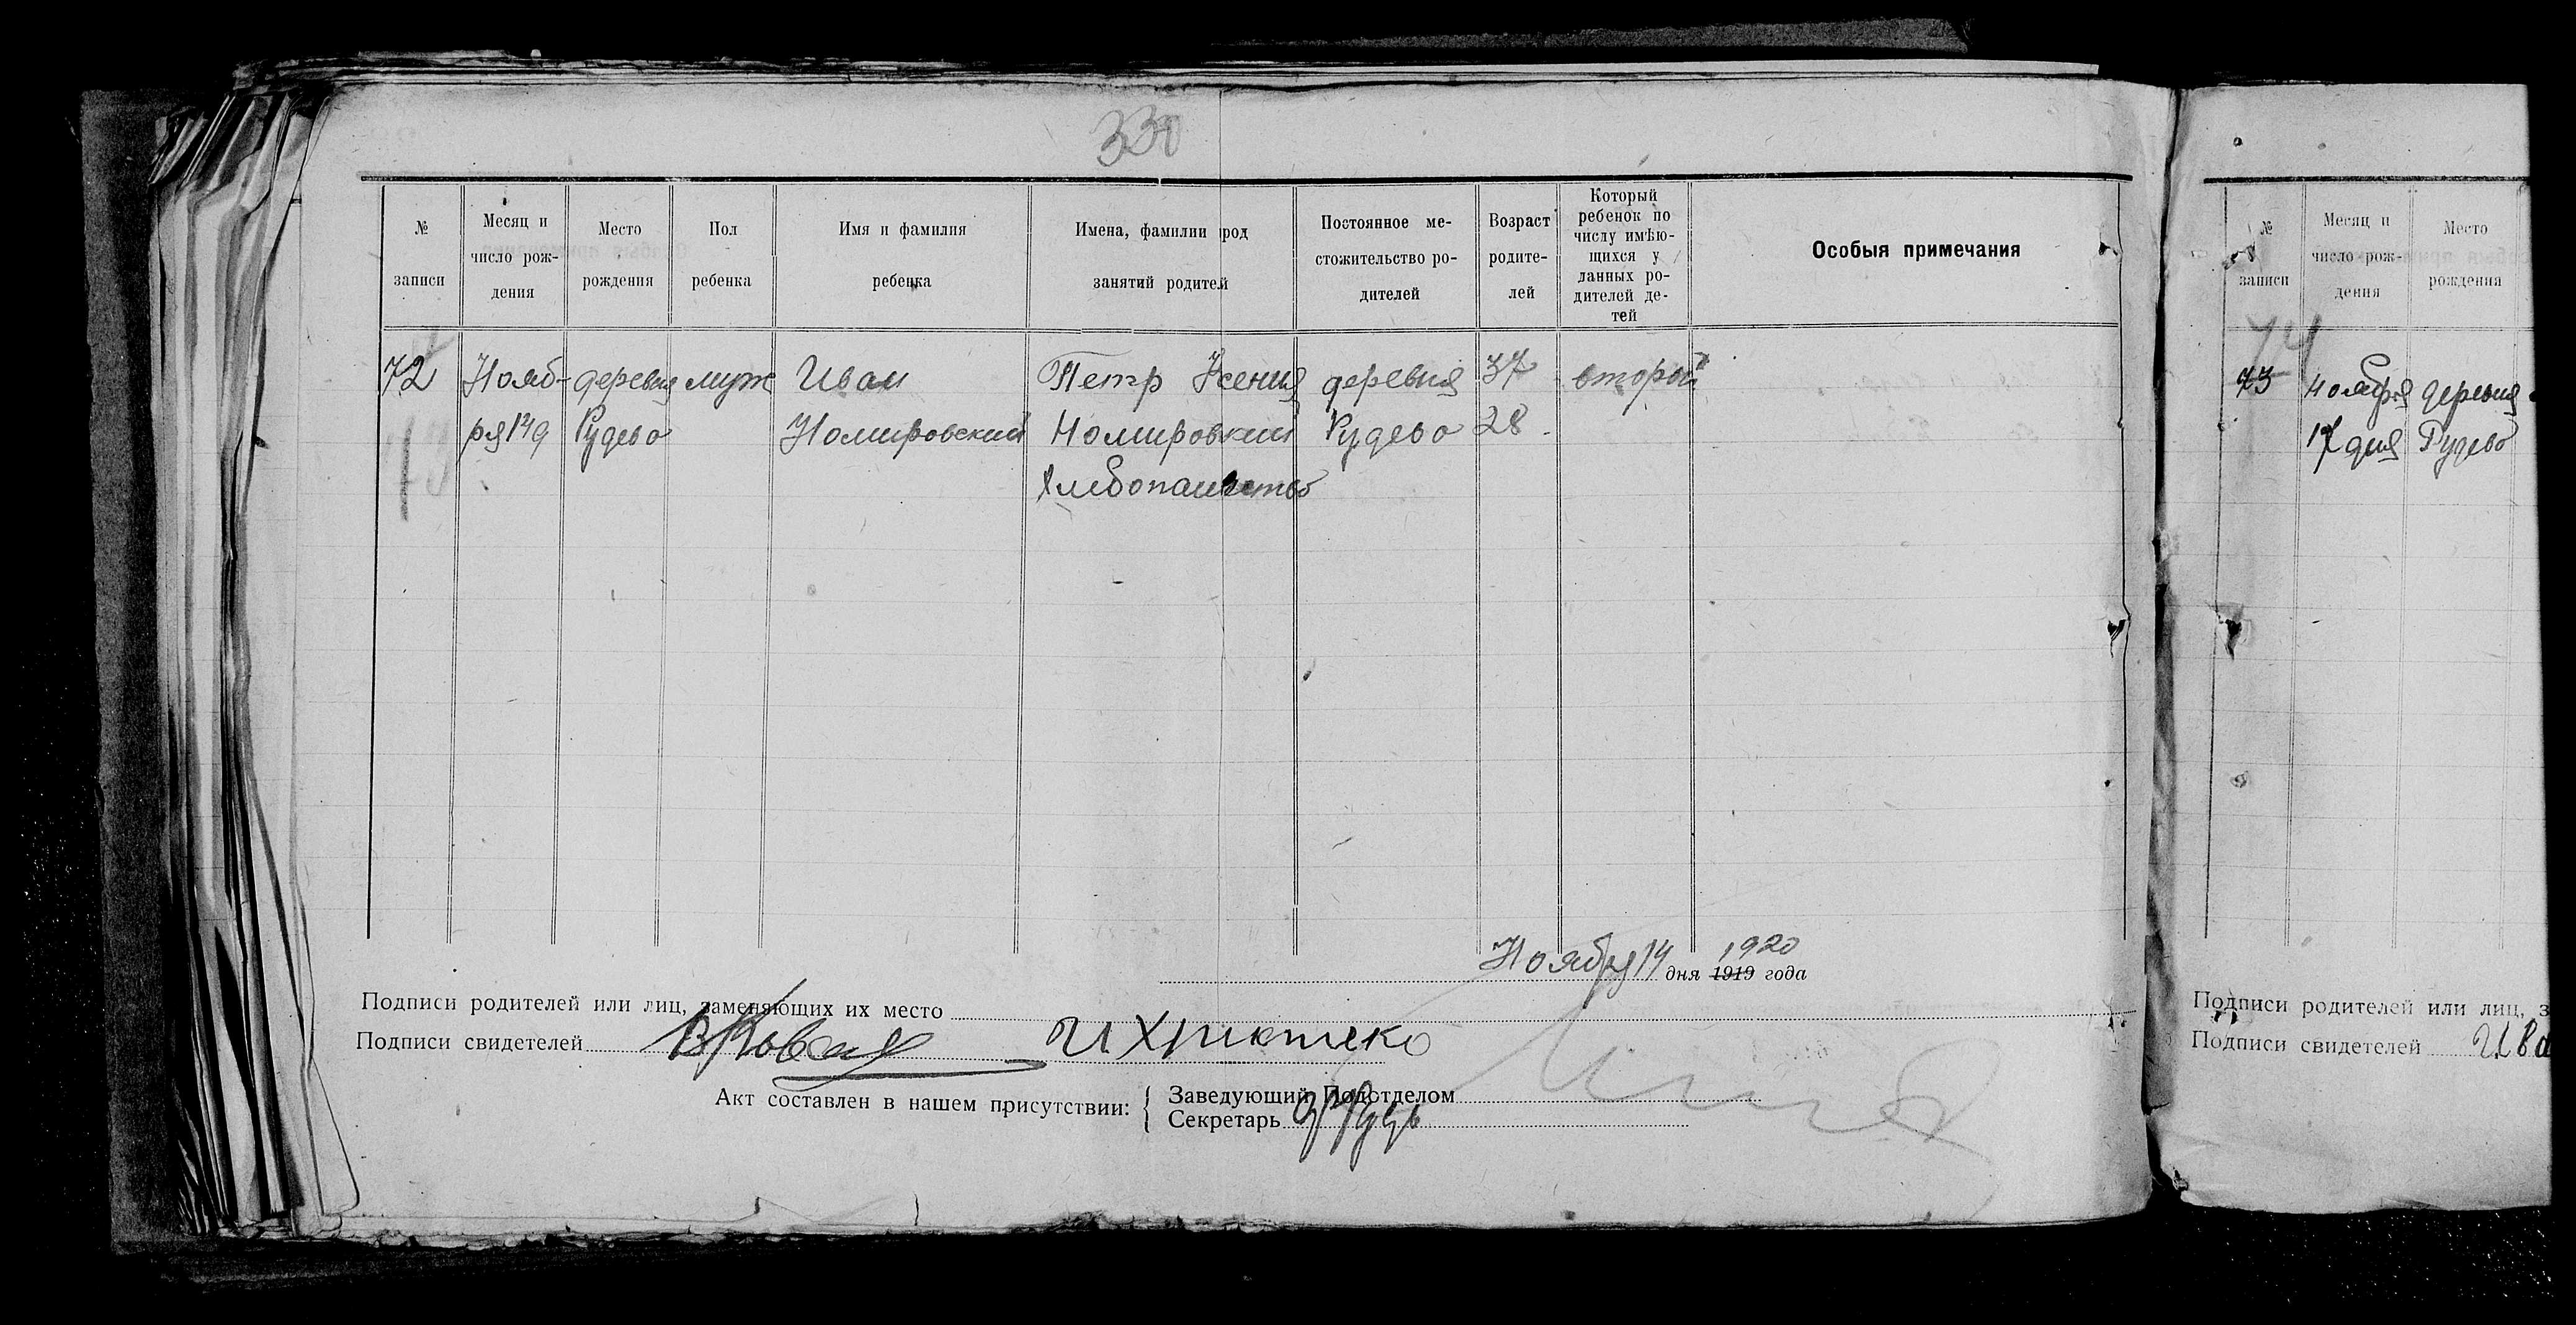 330
№ записи
Месяц и число рождения
Место рождения
Пол ребенка
Имя и фамилия ребенка
Имена, фамилии род занятий родителей
Постоянное местожительство родителей
Возраст родителей
Который ребенок по числу имѣющихся у данных родителей детей
Особыя примечания
72 Нояб- деревня муж Иван Петр Ксения деревня 37 второй
ря 14 д Рудево Номировский Номировкий Рудево 28
Хлебопашество
Ноября 14 дня 1919 1920 года
Подписи родителей или лиц, заменяющих их место
Подписи свидетелей
Акт составлен в нашем присутствии:
Заведующий Подотделом
Секретарь
№ записи
Месяц и число рождения
Место рождения
74
73 Ноября деревня
17 дня Рудево
Подписи родителей или лиц, з
Подписи свидетелей Ива